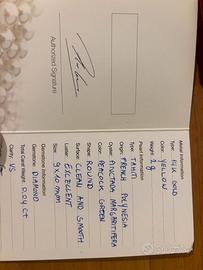 Authorized Signature
Metal Information
Type: 14K GOLD
Color: YELLOW
Weight: 2g
Pearl Information
Type: TAHITI
Origin: FRENCH POLYNESIA
Oyster: PINCTADA MARGARITIFERA
Color: PEACOCK GREEN
Shape: ROUND
Surface: CLEAN AND SMOOTH
Luster: EXCELLENT
Size: 9x10mm
Gemstone Information
Gemstone: DIAMOND
Total Carat Weight: 0,04 CT
Clarity: VS